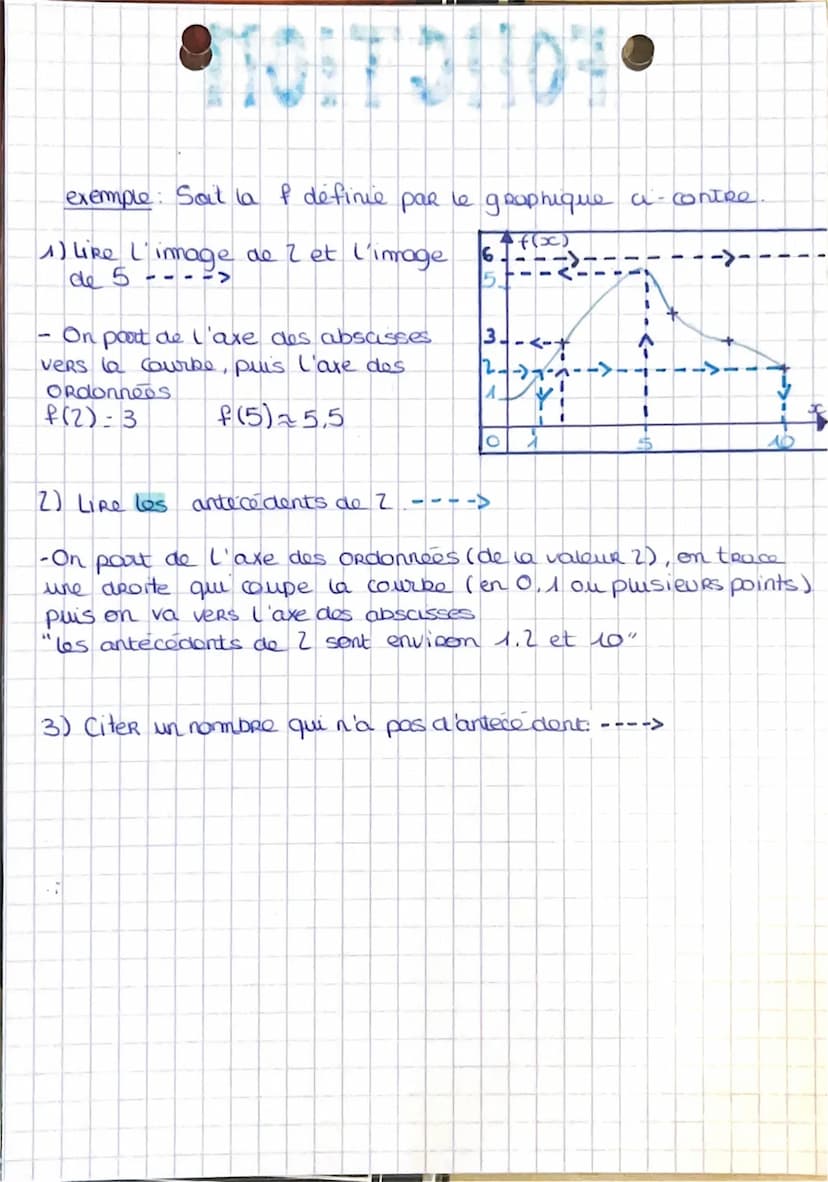 FONCTION
exemple: Soit la f définie par le graphique ci-contre.
1) Lire l'image de 2 et l'image
de 5 ---->
- On part de l'axe des abscisses
vers la courbe, puis l'axe des
ordonnées
f(2) = 3 f(5) ≈ 5,5
f(x)
6
5
3
2
1
0 1 5 10
x
2) Lire les antécédents de 2 ---->
-On part de l'axe des ordonnées (de la valeur 2), on trace
une droite qui coupe la courbe (en 0, 1 ou plusieurs points)
puis on va vers l'axe des abscisses
"les antécédents de 2 sont environ 1.2 et 10"
3) Citer un nombre qui n'a pas d'antécédent: ---->